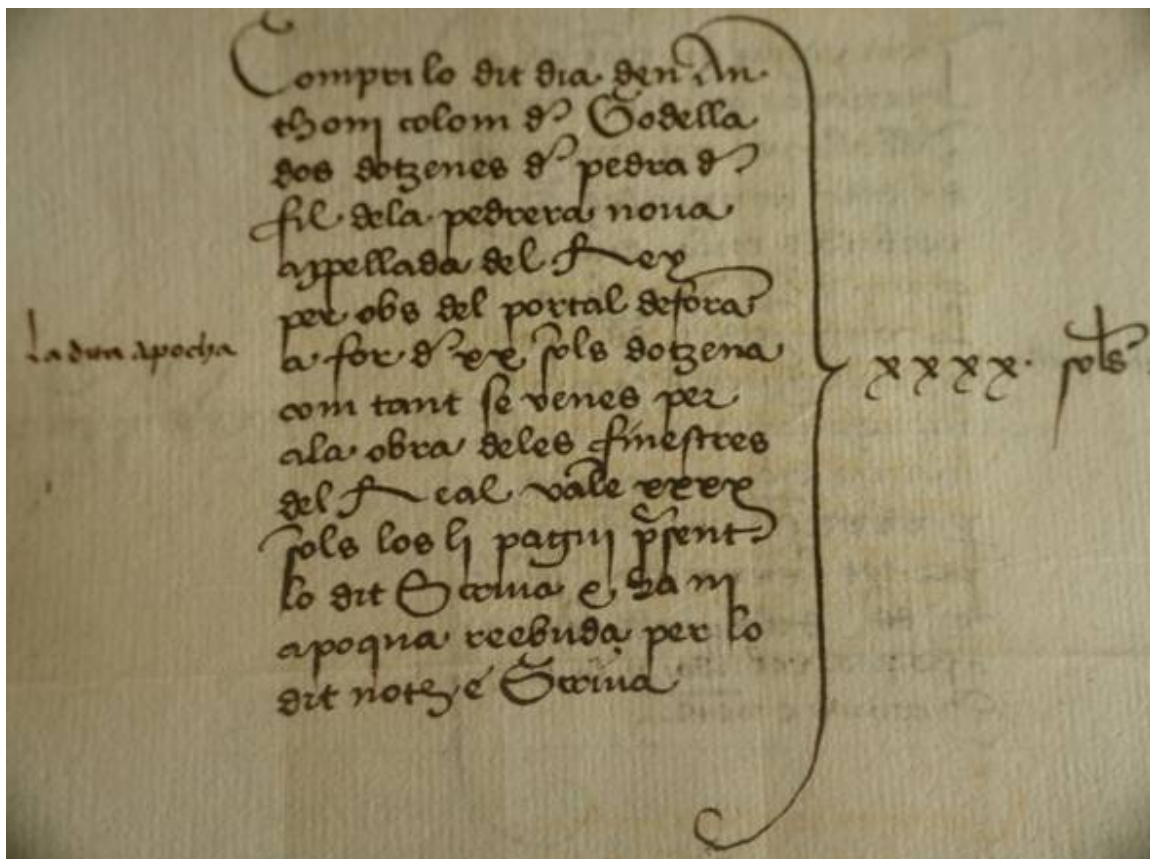 Compri lo dit dia den An
thoni colom d Godella
dos dotzenes d pedra d
fil dela pedrera nova
appellada del Rey
per obs del portal defora
a for d xx sols dotzena
com tant se venes per
ala obra deles finestres
del Real vale xxxx
sols los li pagui psent
lo dit Scriva e ha ni
apoqua reebuda per lo
dit not e Scriva
La dita apocha
xxxx. sols